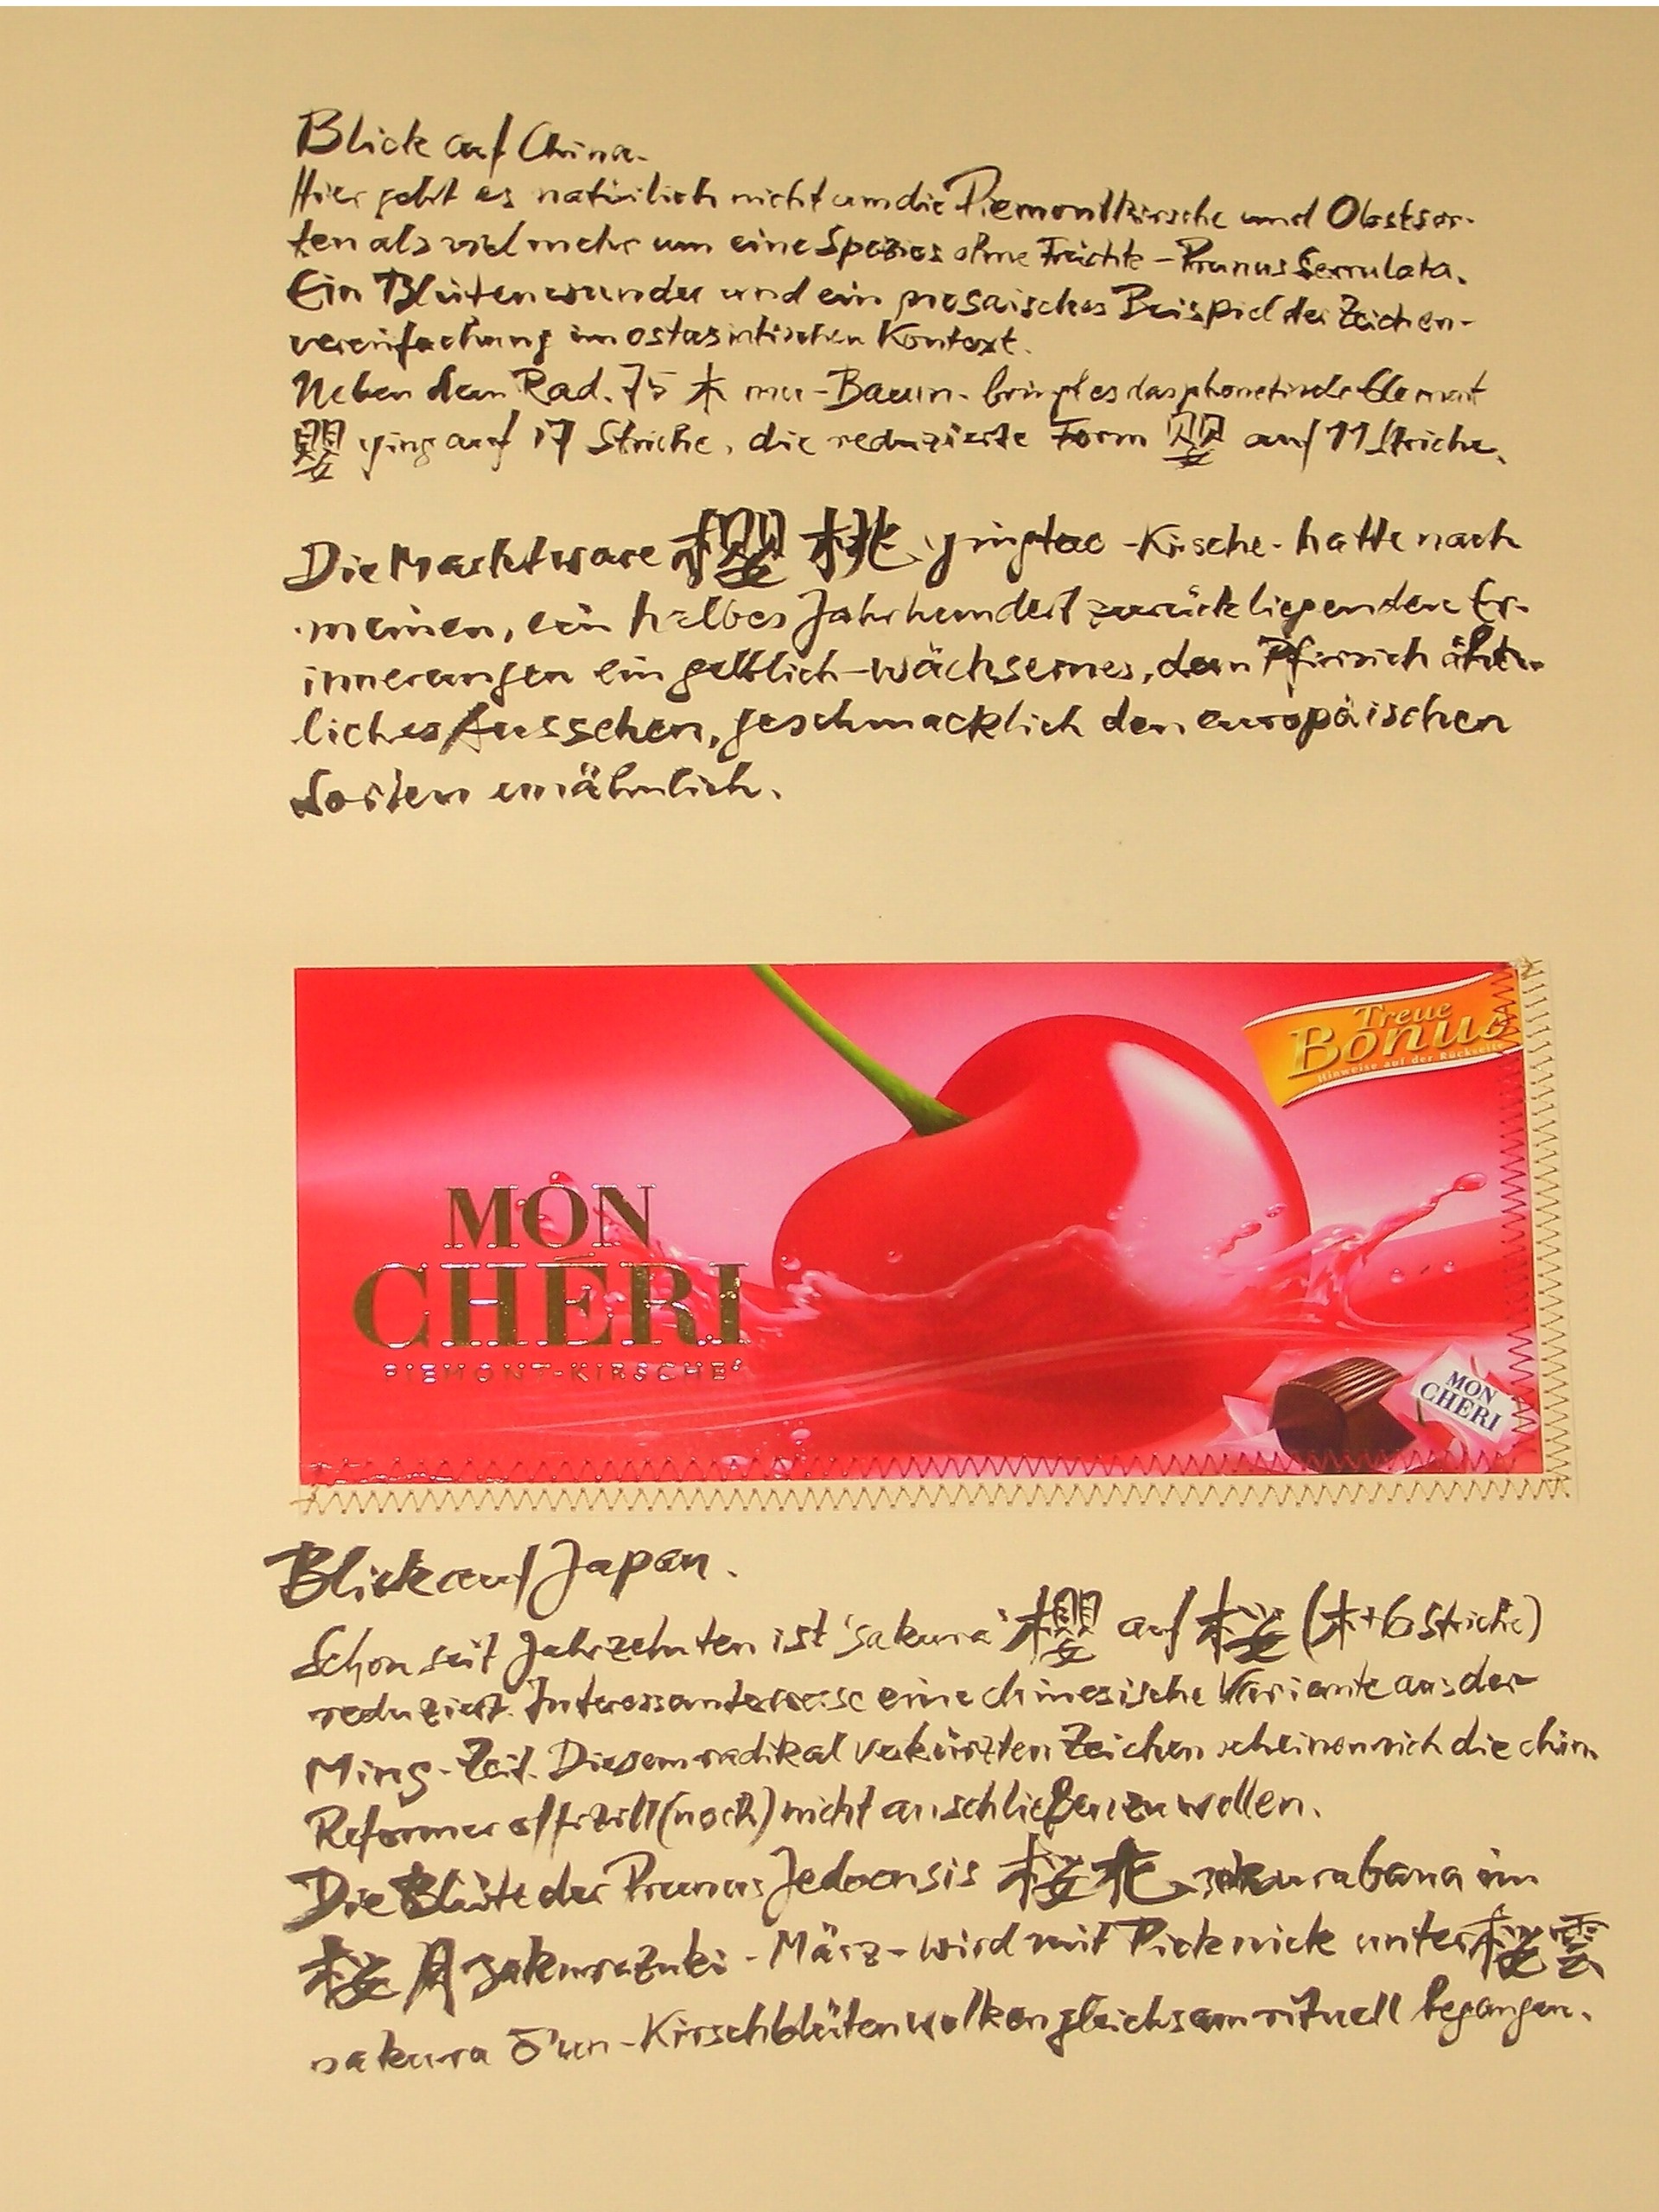 Blick auf China.
Hier geht es natürlich nicht um die Piemontkirsche und Obstsor-
ten als viel mehr um eine Spezies ohne Früchte – Prunus Serrulata.
Ein Blütenwunder und ein prosaisches Beispiel der Zeichen-
vereinfachung im ostasiatischen Kontext.
Neben dem Rad. 75 木 mu-Baum- bringt es das phonetische Element
嬰 ying auf 17 Striche, die reduzierte Form 婴 auf 11 Striche.
Die Marktware 樱桃 yingtao -Kirsche- hatte nach
meinen, ein halbes Jahrhundert zurückliegenden Er-
innerungen ein gelblich-wächsernes, dem Pfirsich ähn-
liches Aussehen, geschmacklich den europäischen
Sorten unähnlich.
Treue
Bonus
Hinweise auf der Rückseite
MON
CHÉRI
PIEMONT-KIRSCHE
MON
CHÉRI
Blick auf Japan.
Schon seit Jahrzehnten ist 'sakura' 櫻 auf 桜 (木+6 Striche)
reduziert. Interessanterweise eine chinesische Variante aus der
Ming-Zeit. Diesem radikal verkürzten Zeichen scheinen sich die chin.
Reformer offiziell (noch) nicht anschließen zu wollen.
Die Blüte der Prunus Jedoensis 桜花 sakurabana im
桜月 sakurazuki - März - wird mit Picknick unter 桜雲
sakura ō'un - Kirschblütenwolken gleichsam rituell begangen.